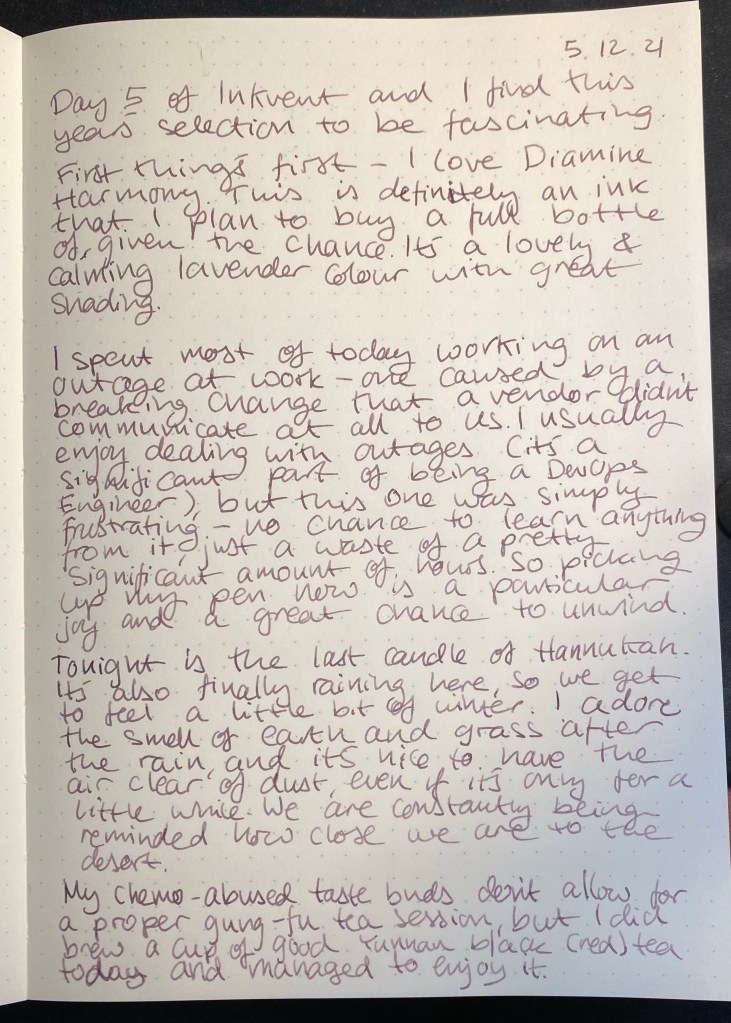 5.12.21
Day 5 of Inkvent and I find this
years selection to be fascinating.
First things first - I love Diamine
Harmony. This is definitely an ink
that I plan to buy a full bottle
of, given the chance. It's a lovely &
calming lavender colour with great
shading.
I spent most of today working on an
outage at work - one caused by a
breaking change that a vendor didn't
communicate at all to us. I usually
enjoy dealing with outages (it's a
significant part of being a DevOps
Engineer), but this one was simply
frustrating - no chance to learn anything
from it, just a waste of a pretty
significant amount of hours. So picking
up my pen now is a particular
joy and a great chance to unwind.
Tonight is the last candle of Hannukah.
It's also finally raining here, so we get
to feel a little bit of winter. I adore
the smell of earth and grass after
the rain, and it's nice to have the
air clear of dust, even if it's only for a
little while. We are constantly being
reminded how close we are to the
desert.
My chemo-abused taste buds don't allow for
a proper gung-fu tea session, but I did
brew a cup of good Yunnan black (red) tea
today and managed to enjoy it.